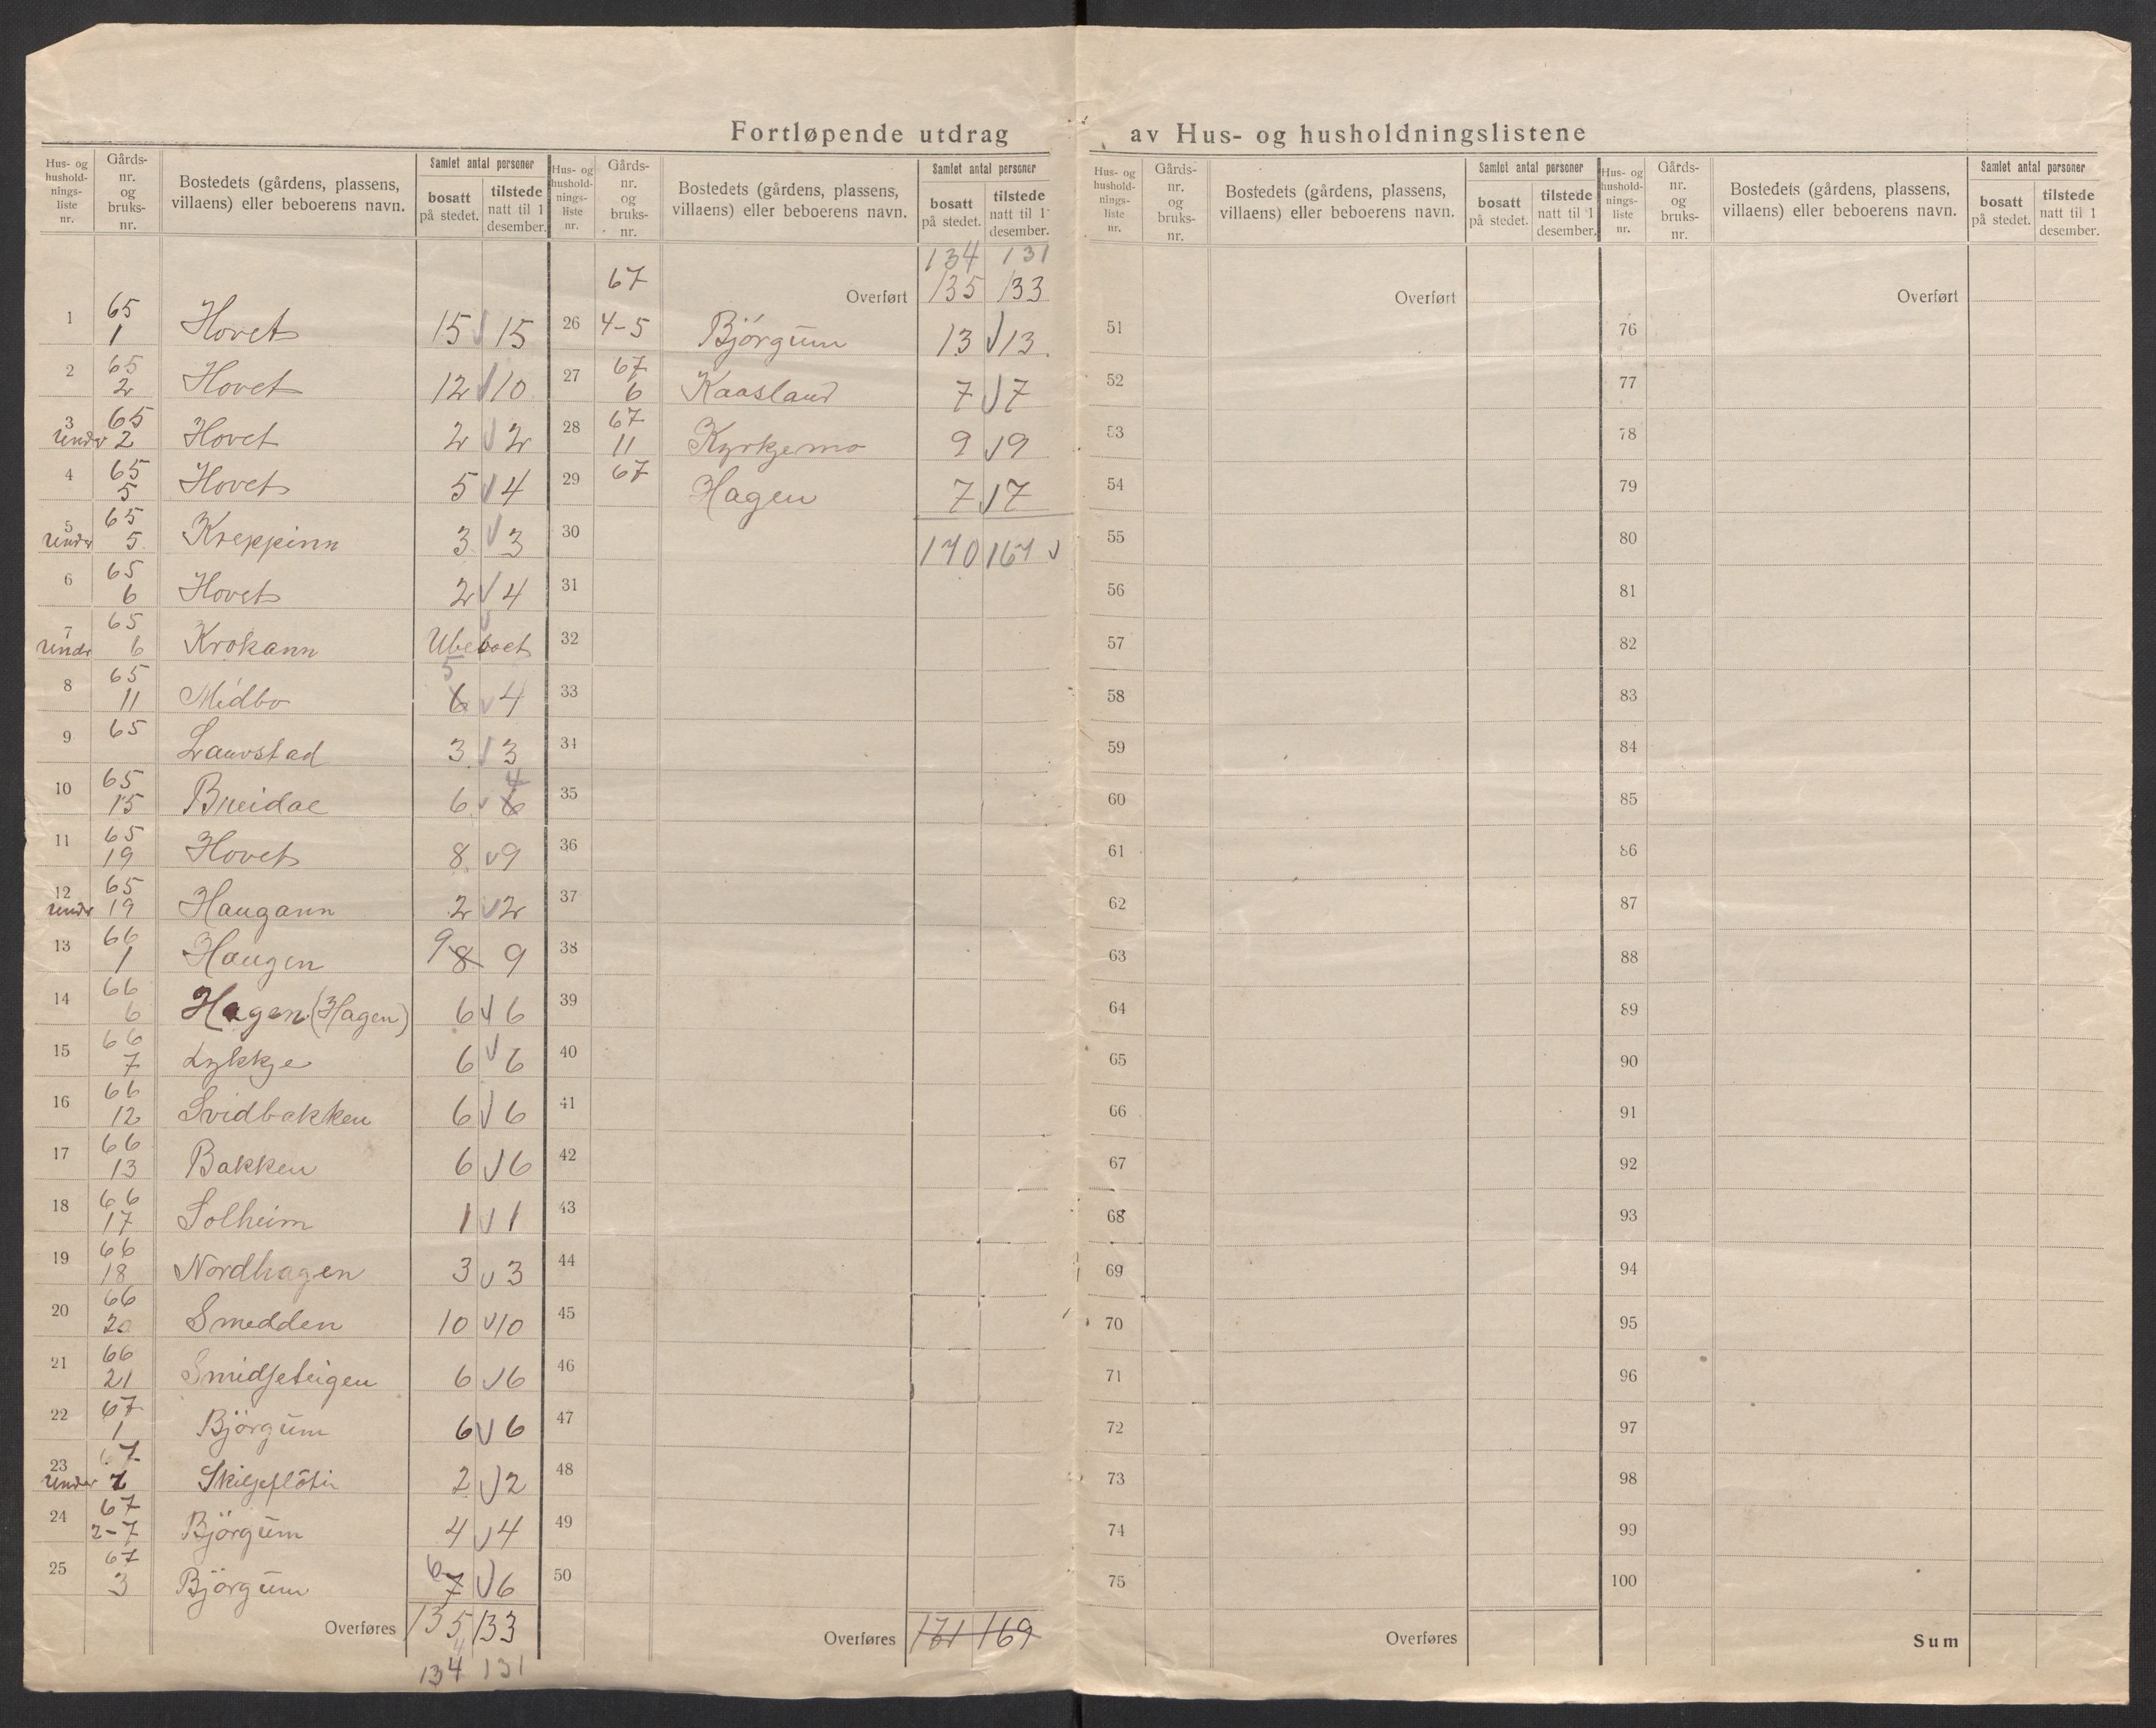 Fortløpende utdrag av Hus- og husholdningslistene
Hus- og hushold-nings-liste nr. Gårds-nr. og bruks-nr. Bostedets (gårdens, plassens, villaens) eller beboerens navn. Samlet antal personer bosatt på stedet. tilstede natt til 1 desember.
1 65 1 Hovet 15 15
2 65 2 Hovet 12 10
3 Under 65 2 Hovet 2 2
4 65 5 Hovet 5 4
5 Under 65 5 Kreppinn 3 3
6 65 6 Hovet 2 4
7 Undr 65 6 Krokann Ubeboet
8 65 11 Midbo 6 5 4
9 65 Lauvstad 3 3
10 65 15 Breidal 6 6 4
11 65 19 Hovet 8 9
12 Undr 65 19 Haugann 2 2
13 66 1 Haugen 9 8 9
14 66 6 Hagen (Hagen) 6 6
15 66 7 Lykkje 6 6
16 66 12 Svidbakken 6 6
17 66 13 Bakken 6 6
18 66 17 Solheim 1 1
19 66 18 Nordhagen 3 3
20 66 20 Smedden 10 10
21 66 21 Smidjeteigen 6 6
22 67 1 Björgum 6 6
23 Under 67 Skiljeflötin 2 2
24 67 2-7 Björgum 4 4
25 67 3 Björgum 6 7 6
Overføres 135 133
4
134 131
Hus- og hushold-nings-liste nr. Gårds-nr. og bruks-nr. Bostedets (gårdens, plassens, villaens) eller beboerens navn. Samlet antal personer bosatt på stedet. tilstede natt til 1 desember.
134 131
Overført 135 133
26 67 4-5 Björgum 13 13
27 67 6 Kaasland 7 7
28 67 11 Kyrkjemo 9 9
29 67 Hagen 7 7
30 170 167
31
32
33
34
35
36
37
38
39
40
41
42
43
44
45
46
47
48
49
50
Overføres 171 169
Hus- og hushold-nings-liste nr. Gårds-nr. og bruks-nr. Bostedets (gårdens, plassens, villaens) eller beboerens navn. Samlet antal personer bosatt på stedet. tilstede natt til 1 desember.
Overført
51
52
53
54
55
56
57
58
59
60
61
62
63
64
65
66
67
68
69
70
71
72
73
74
75
Overføres
Hus- og hushold-nings-liste nr. Gårds-nr. og bruks-nr. Bostedets (gårdens, plassens, villaens) eller beboerens navn. Samlet antal personer bosatt på stedet. tilstede natt til 1 desember.
Overført
76
77
78
79
80
81
82
83
84
85
86
87
88
89
90
91
92
93
94
95
96
97
98
99
100
Sum